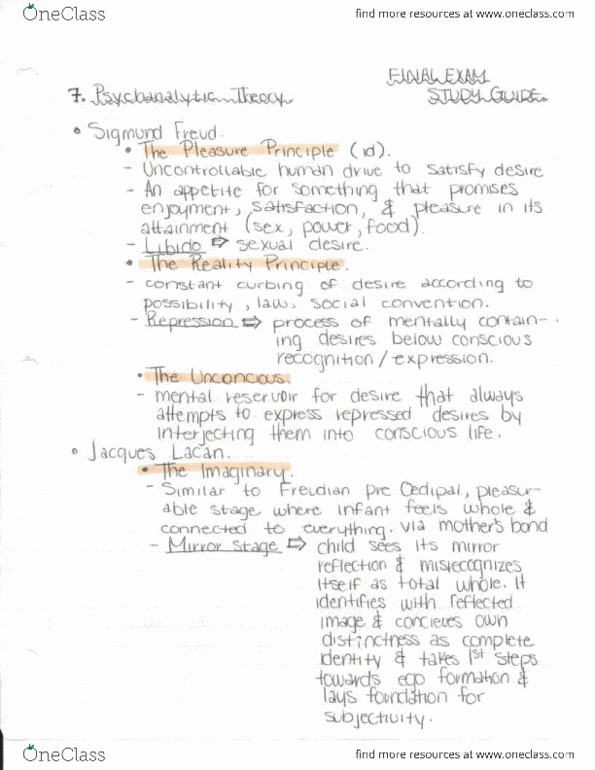 OneClass
find more resources at www.oneclass.com
FINAL EXAM
7. Psychanalytic Theory
STUDY GUIDE.
• Sigmund Freud.
• The Pleasure Principle (id).
- Uncontrollable human drive to satisfy desire
- An appetite for something that promises
enjoyment, satisfaction, & pleasure in its
attainment (sex, power, food).
- Libido ⇨ sexual desire.
• The Reality Principle.
- constant curbing of desire according to
possibility, law, social convention.
- Repression ⇨ process of mentally contain-
ing desires below conscious
recognition/expression.
• The Unconcious.
- mental reservoir for desire that always
attempts to express repressed desires by
interjecting them into conscious life.
• Jacques Lacan.
• The Imaginary.
- Similar to Freudian pre Oedipal, pleasur-
able stage where infant feels whole &
connected to everything. via mother's bond
- Mirror Stage ⇨ child sees its mirror
reflection & misrecognizes
itself as total whole. It
identifies with reflected
image & concieves own
distinctness as complete
identity & takes 1st steps
towards ego formation &
lays foundation for
subjectivity.
OneClass
find more resources at www.oneclass.com